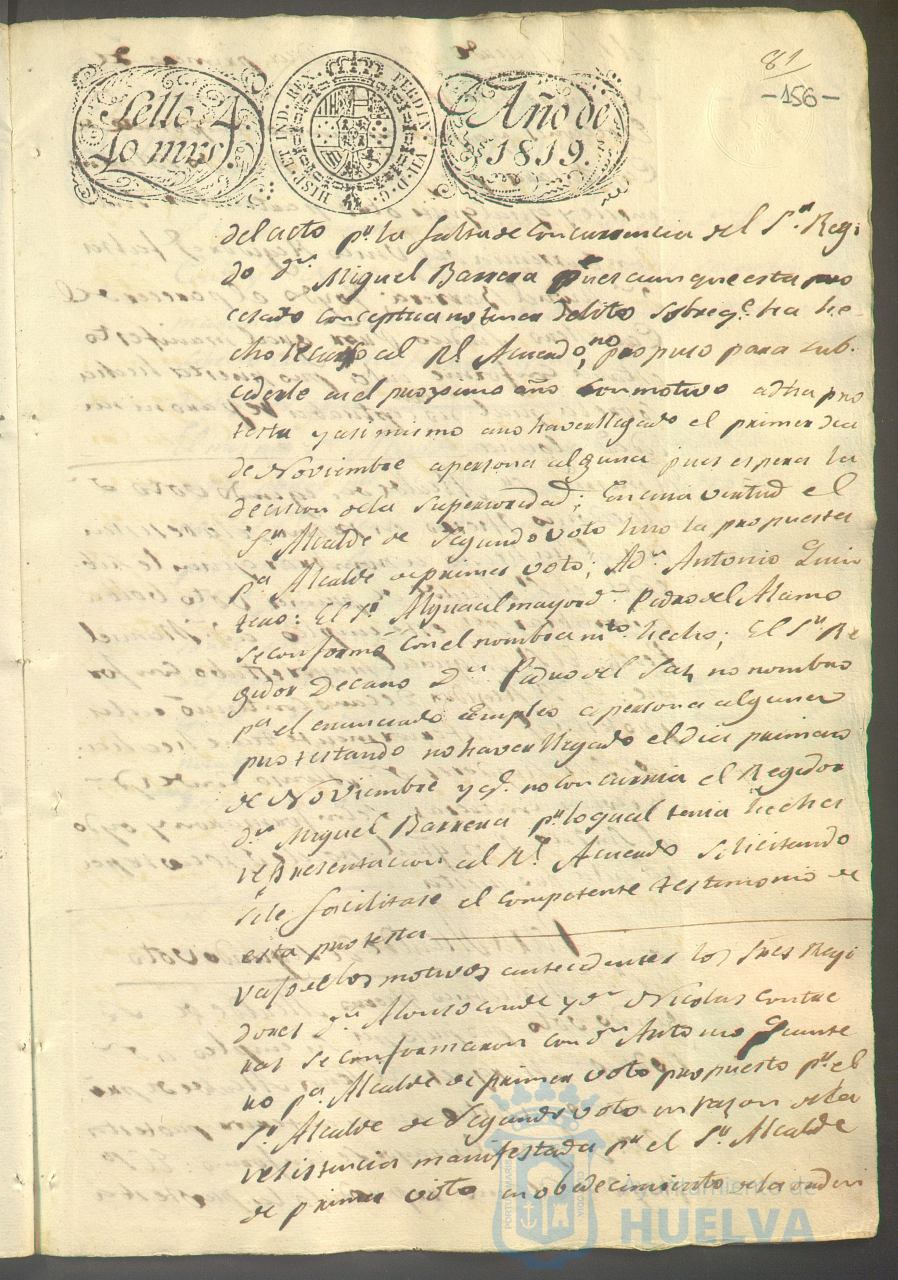 81
-156-
Sello 4.
40 mrs.
HISP. ET IND. REX. FERDIN. VII. D. G.
Año de
1819.
del acto pr. la falta de concurrencia del Sr. Regi
do dn. Miguel Barrera pues aun que esta pro
cesado conceptua no tener delito sobre qe. ha he-
cho recurso al Rl. Acuerdo, no propuso para sub-
cederle en el proximo año con motivo a dha pro
testa y asi mismo a no haver llegado el primer dia
de Noviembre a persona alguna pues espera la
decision de la Superioridad; En cuia virtud el
Sr. Alcalde de Segundo voto hizo la propuesta
pa. Alcalde de primer voto; A Dn. Antonio Quin
tero: El Sr. Alguacil mayor dn. Pedro del Alamo
se conformó con el nombramto. hecho; El Sr. Re
gidor Decano Dn. Pedro del Saz no nombro
pa. el enunciado Empleo a persona alguna
protestando no haver llegado el dia primero
de Noviembre y qe. no concurria el Regidor
dn. Miguel Barrera pr. lo qual tenia hecha
representacion al Rl. Acuerdo solicitando
se le facilitase el competente testimonio de
esta protesta
Vajo de los motivos antecedentes los Sres Regi
dores dn. Alonso Conde y dn. Nicolas Contre
ras se conformaron con dn. Antonio Quinte
ro pa. Alcalde de primer voto propuesto pr. el
Sr. Alcalde de Segundo voto en razon de la
resistencia manifestada pr. el Sr. Alcalde
de primer voto en obedecimiento de la orden
Ayuntamiento de
HUELVA